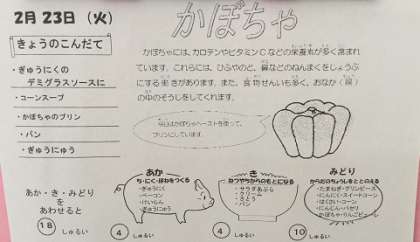 2月 23日（火）
きょうのこんだて
・ぎゅうにくの
デミグラスソースに
・コーンスープ
・かぼちゃのプリン
・パン
・ぎゅうにゅう
あか・き・みどり
を
あわせると
18 しゅるい
かぼちゃ
かぼちゃには、カロテンやビタミンCなどの栄養素が多く含まれ
ています。これらには、ひふやのど、鼻などのねんまくをじょうぶ
にする働きがあります。また、食物せんいも多く、おなか（腸）
の中のそうじをしてくれます。
今日はかぼちゃペーストを使って、
プリンにしています。
あか
ち・にく・ほねをつくる
・ぎゅうにく
・ベーコン
・ぎゅうにゅう
4 しゅるい
き
ねつやちからのもとになる
・サラダあぶら
・さとう
・パン
4 しゅるい
みどり
からだのちょうしをととのえる
・たまねぎ・グリンピース
・にんじん・スイートコーン
・はくさい・コーン
・にんにく・パセリ
10 しゅるい